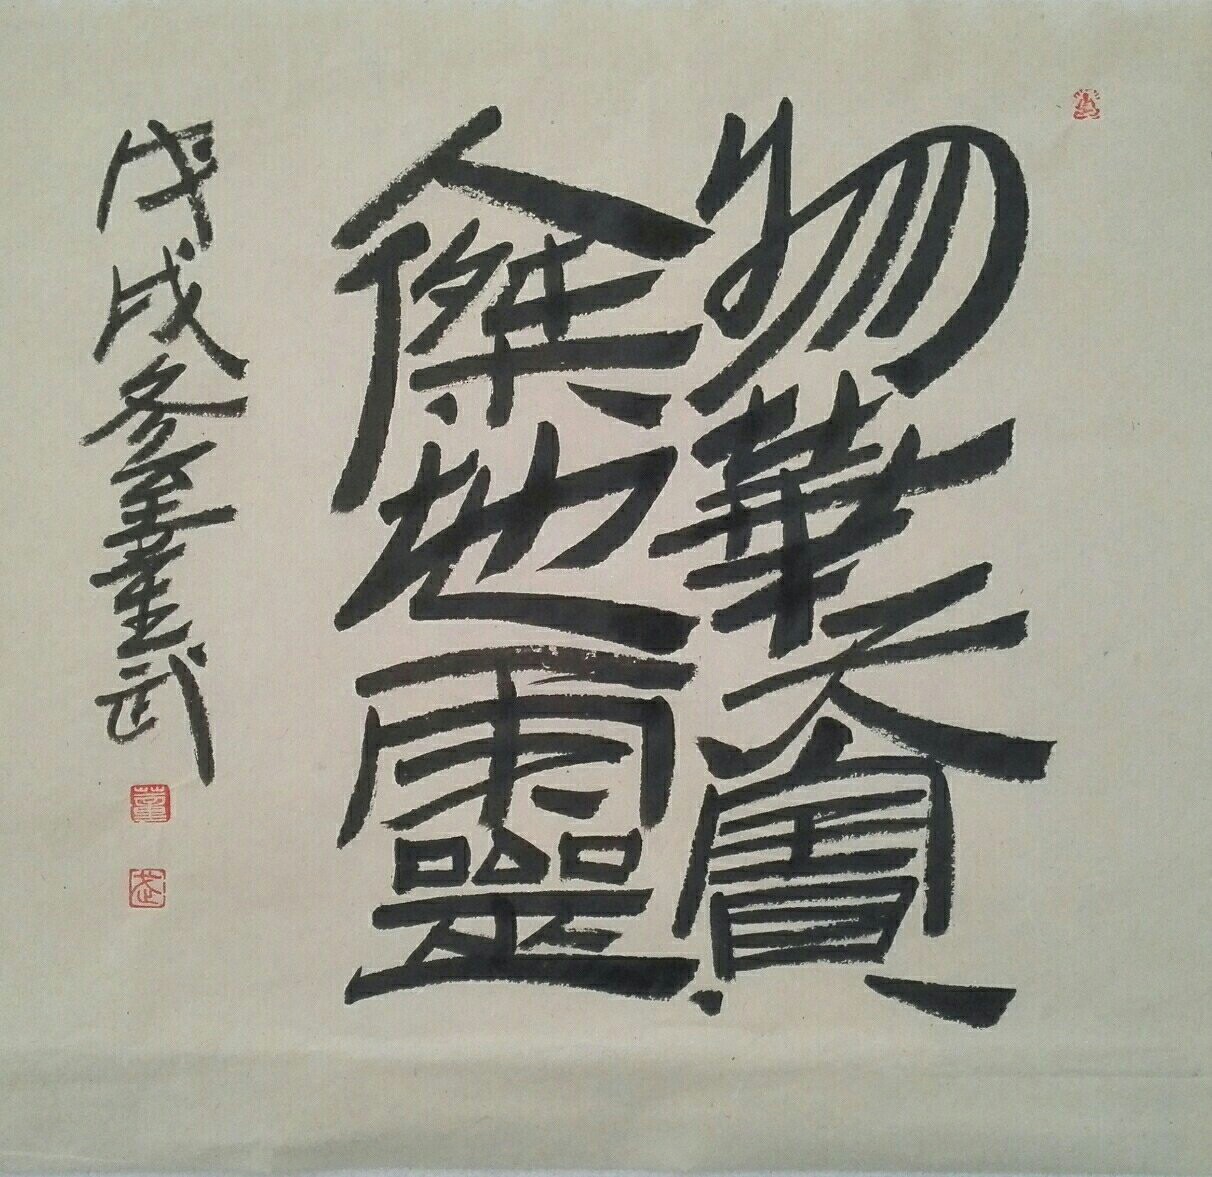 物華天寶
人傑地靈
戊戌冬至董武
董
武